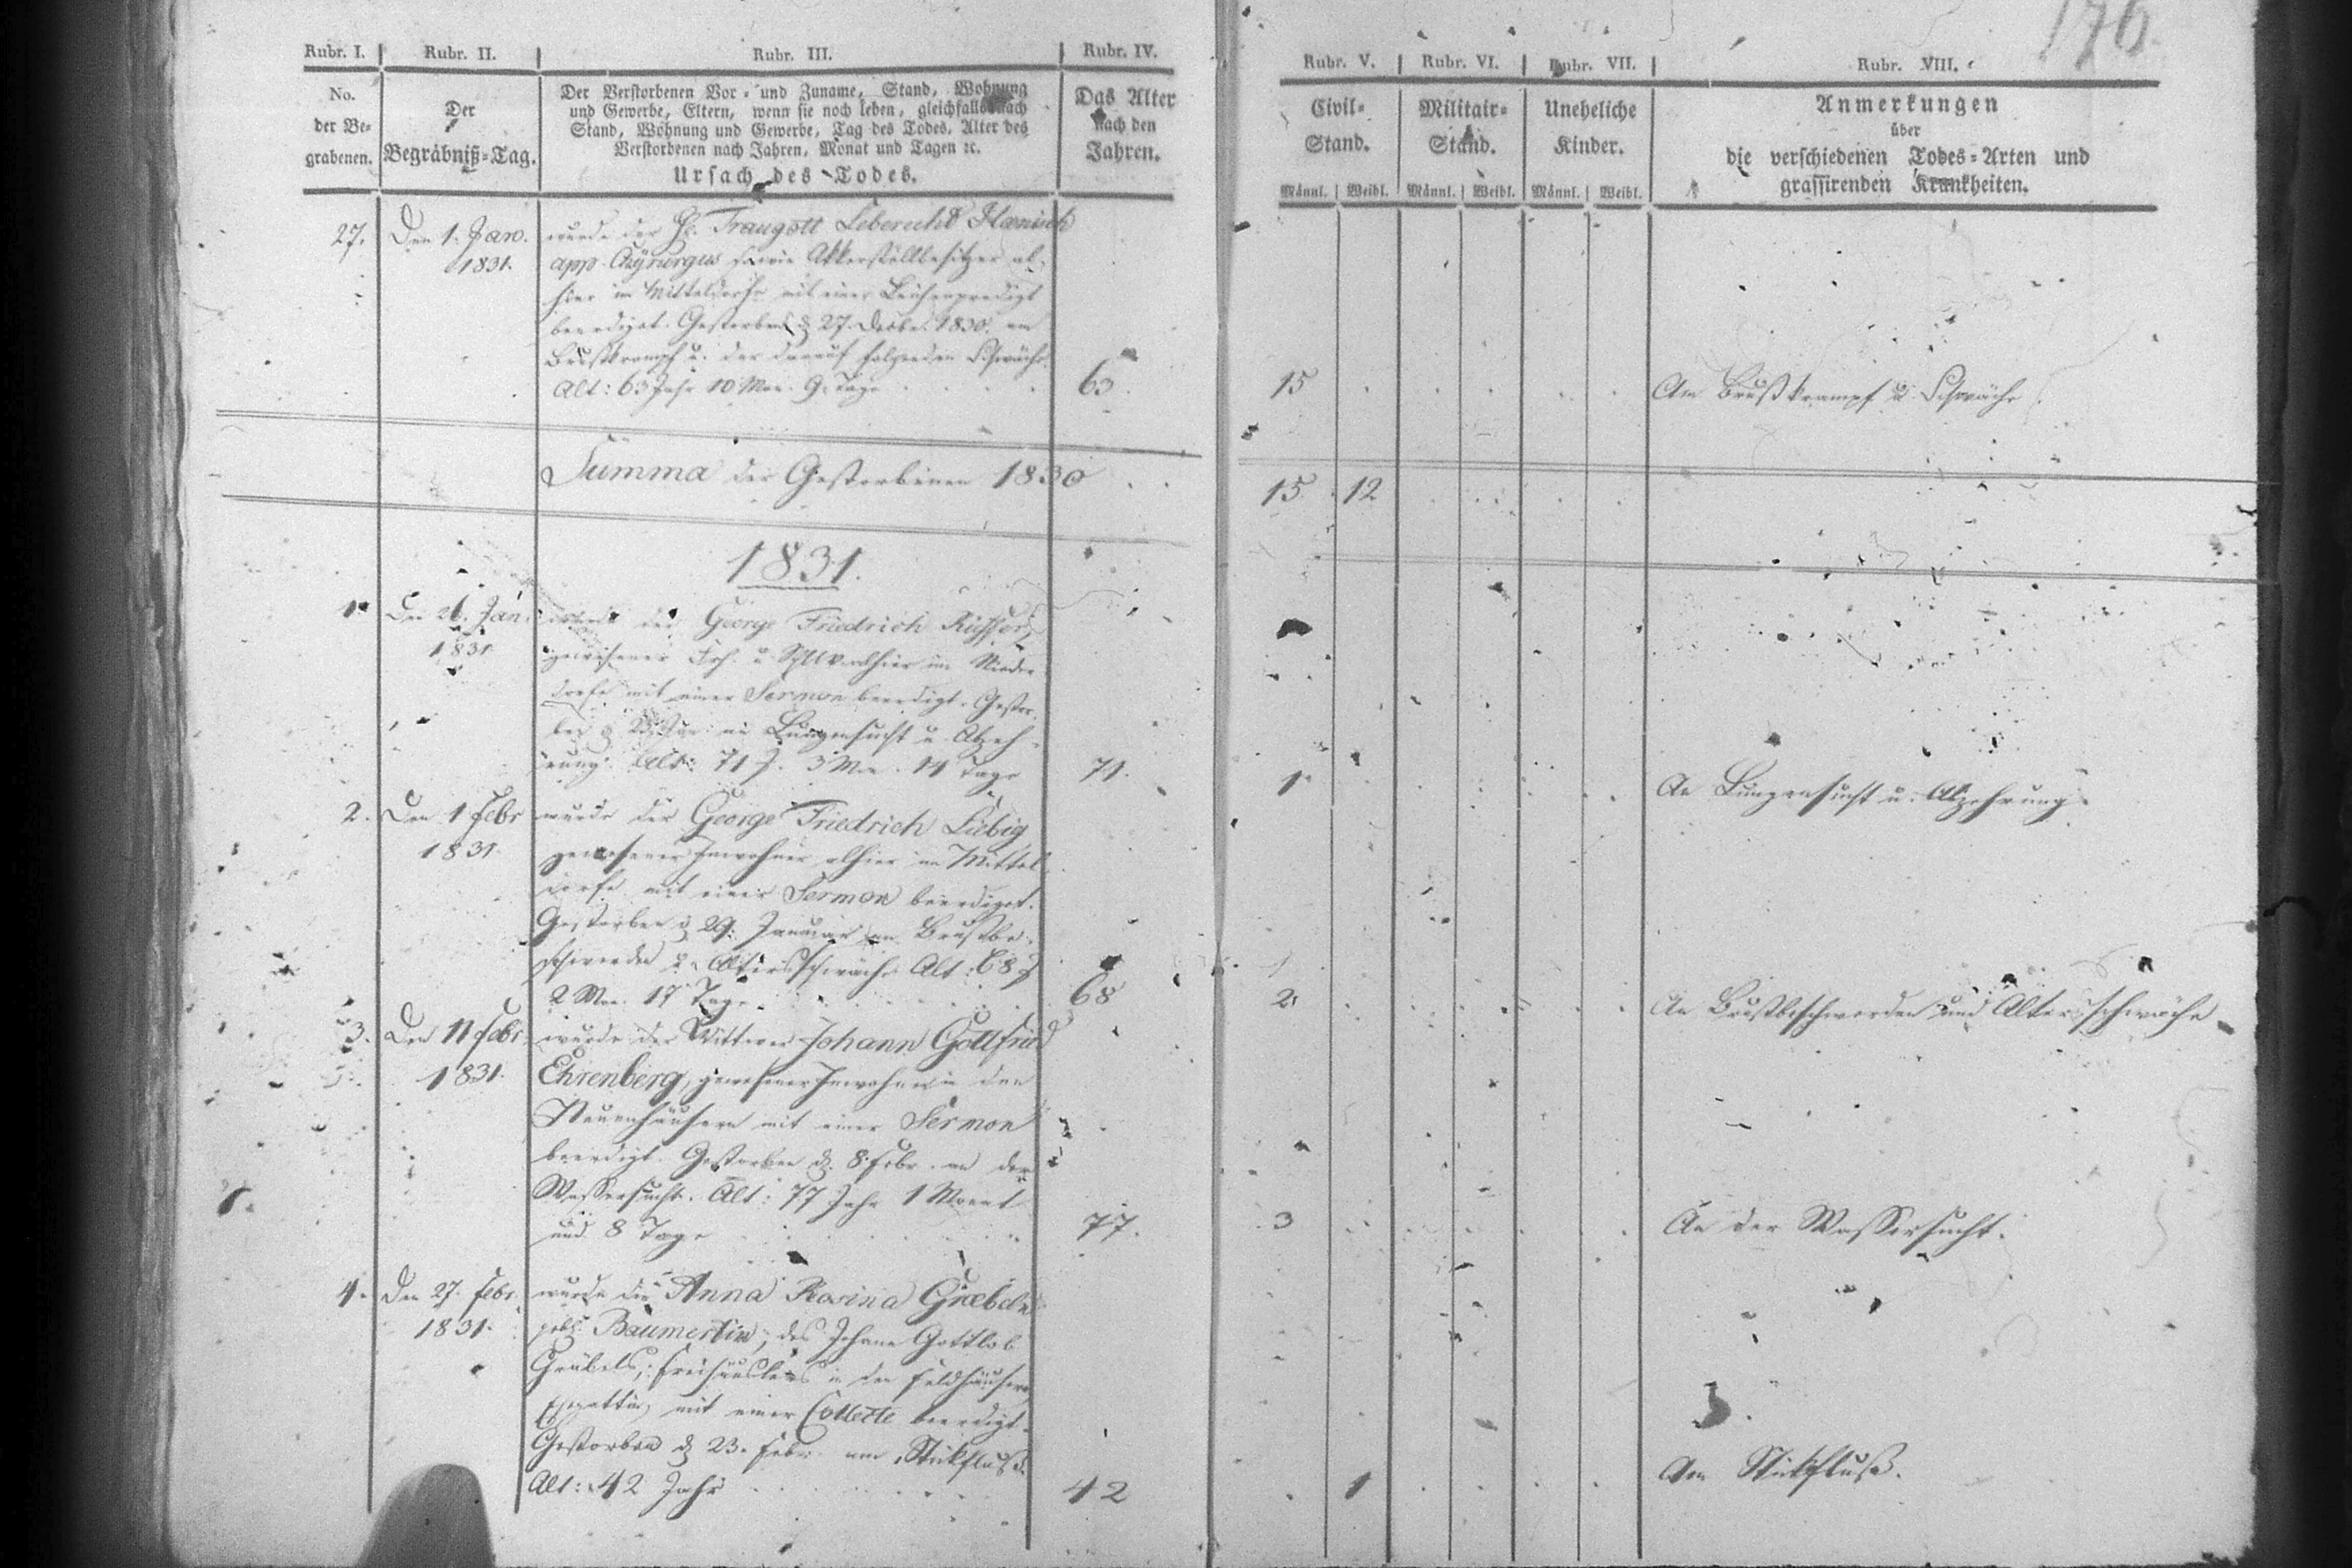 176.
Rubr. I. Rubr. II. Rubr. III. Rubr. IV. Rubr. V. Rubr. VI. Rubr. VII. Rubr. VIII.
No.
der Be-
grabenen.
Der
Begräbniß-Tag.
Der Verstorbenen Vor- und Zuname, Stand, Wohnung
und Gewerbe, Eltern, wenn sie noch leben, gleichfalls nach
Stand, Wohnung und Gewerbe, Tag des Todes, Alter des
Verstorbenen nach Jahren, Monat und Tagen ꝛc.
Ursach des Todes.
Das Alter
nach den
Jahren.
Civil-
Stand.
Männl. Weibl.
Militair-
Stand.
Männl. Weibl.
Uneheliche
Kinder.
Männl. Weibl.
Anmerkungen
über
die verschiedenen Todes-Arten und
grassirenden Krankheiten.
27. Den 1. Jan. wurde der H. Traugott Leberecht Hænisch
1831. app. Chyrurgus sowie Akkerstellbesitzer al-
hier im Mitteldorfe mit einer Leichenpredigt
beerdigt. Gestorben d. 27. Decbr. 1830. am
Brustkrampf u. der darauf folgenden Schwäche.
Alt: 63 Jahr 10 Mon. 9 Tage 63 15 Am Brustkrampf u. Schwäche.
Summa der Gestorbenen 1830 15 12
1831.
1. Den 26. Jan. wurde der George Friedrich
1831. gewesener alhier im Nieder-
dorfe mit einer Sermon beerdigt. Gestor-
ben d. Jan. an Lungensucht u. Abzeh-
rung. Alt: 71 J. 3 Mon. 14 Tage 71. 1. An Lungensucht u. Abzehrung.
2. Den 1 Febr wurde der George Friedrich Liebig
1831. gewesener Inwohner alhier im Mittel-
dorfe mit einer Sermon beerdigt.
Gestorben d. 29. Januar an Brustbe-
schwerden u. Altersschwäche Alt: 68 J
2 Mon. 17 Tage 68 2. An Brustbeschwerden und Altersschwäche
3. Den 11 Febr. wurde der Wittwer Johann Gottfried
1831. Ehrenberg, gewesener Inwohner in den
Neuenhäusern mit einer Sermon
beerdigt. Gestorben d. 8. Febr. an der
Wassersucht. Alt: 77 Jahr 1 Monat
und 8 Tage 77. 3 An der Wassersucht.
4. Den 27. Febr. wurde die Anna Rosina Græbeln
1831. gebr. Baumertin, des Johann Gottlob
Gräbels, Freihäuslers in den Feldhäusern
Ehegattin, mit einer Collecte beerdigt.
Gestorben d. 23. Febr. am Stickfluß.
Alt: 42 Jahr 42 1 Am Stickfluß.